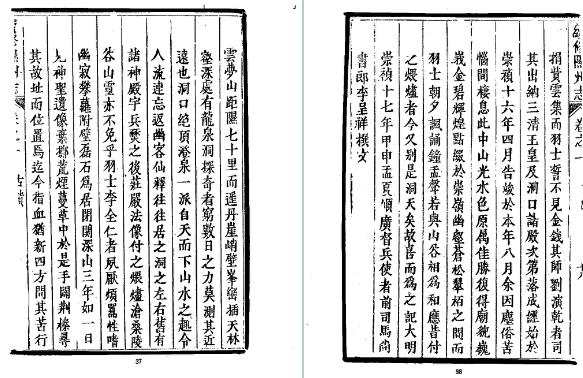 雲夢山距隰七十里而遥丹崖峭壁峯巒插天林
壑深處有龍泉洞探奇者窮數日之力莫測其近
遠也洞口絕頂瀠泉一派自天而下山水之趣令
人流連忘返幽客仙釋往往居之洞之左右舊有
諸神殿宇兵燹之後莊嚴法像付之煨爐滄桑陵
谷山靈亦不免乎羽士李全仁者夙厭煩囂性嗜
幽寂攀蘿附壁磊石為居閉關深山三年如一日
見神聖遺像棄擲荒煙蔓草中於是手闢荆榛尋
其故址而位置焉迄今指血猶新四方聞其苦行
37
續修隰州志 卷之一
捐貲雲集而羽士誓不見金錢其師劉演乾者司
其出納三清玉皇及洞口諸殿次第落成經始於
崇禎十六年四月告竣於本年八月余因塵俗苦
惱間穟息此中山光水色原属佳勝復得廟貌巍
峩金碧輝煌點綴於崇嶺幽壑蒼松翠栢之間而
羽士朝夕諷誦鐘盂聲若與山谷相爲和應昔付
之煨爐者今又别是洞天矣故喜而爲之記大明
崇禎十七年甲申孟夏順廣督兵使者前司馬尚
書郎李呈祥撰文
38